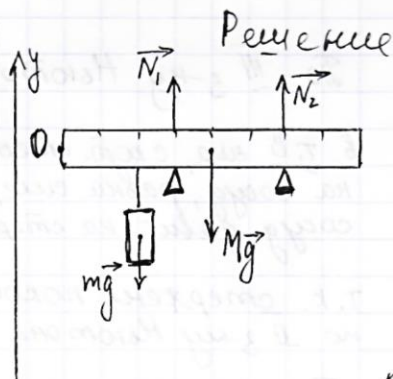 Решение
y
N₁
N₂
O
Mg
mg